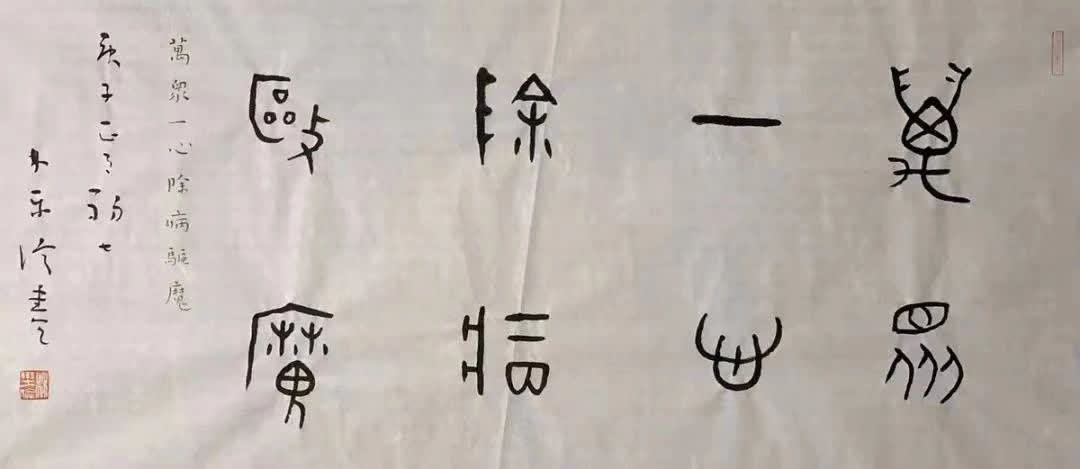 萬眾
一心
除病
驅魔
萬眾一心除病驅魔
庚子正月初七